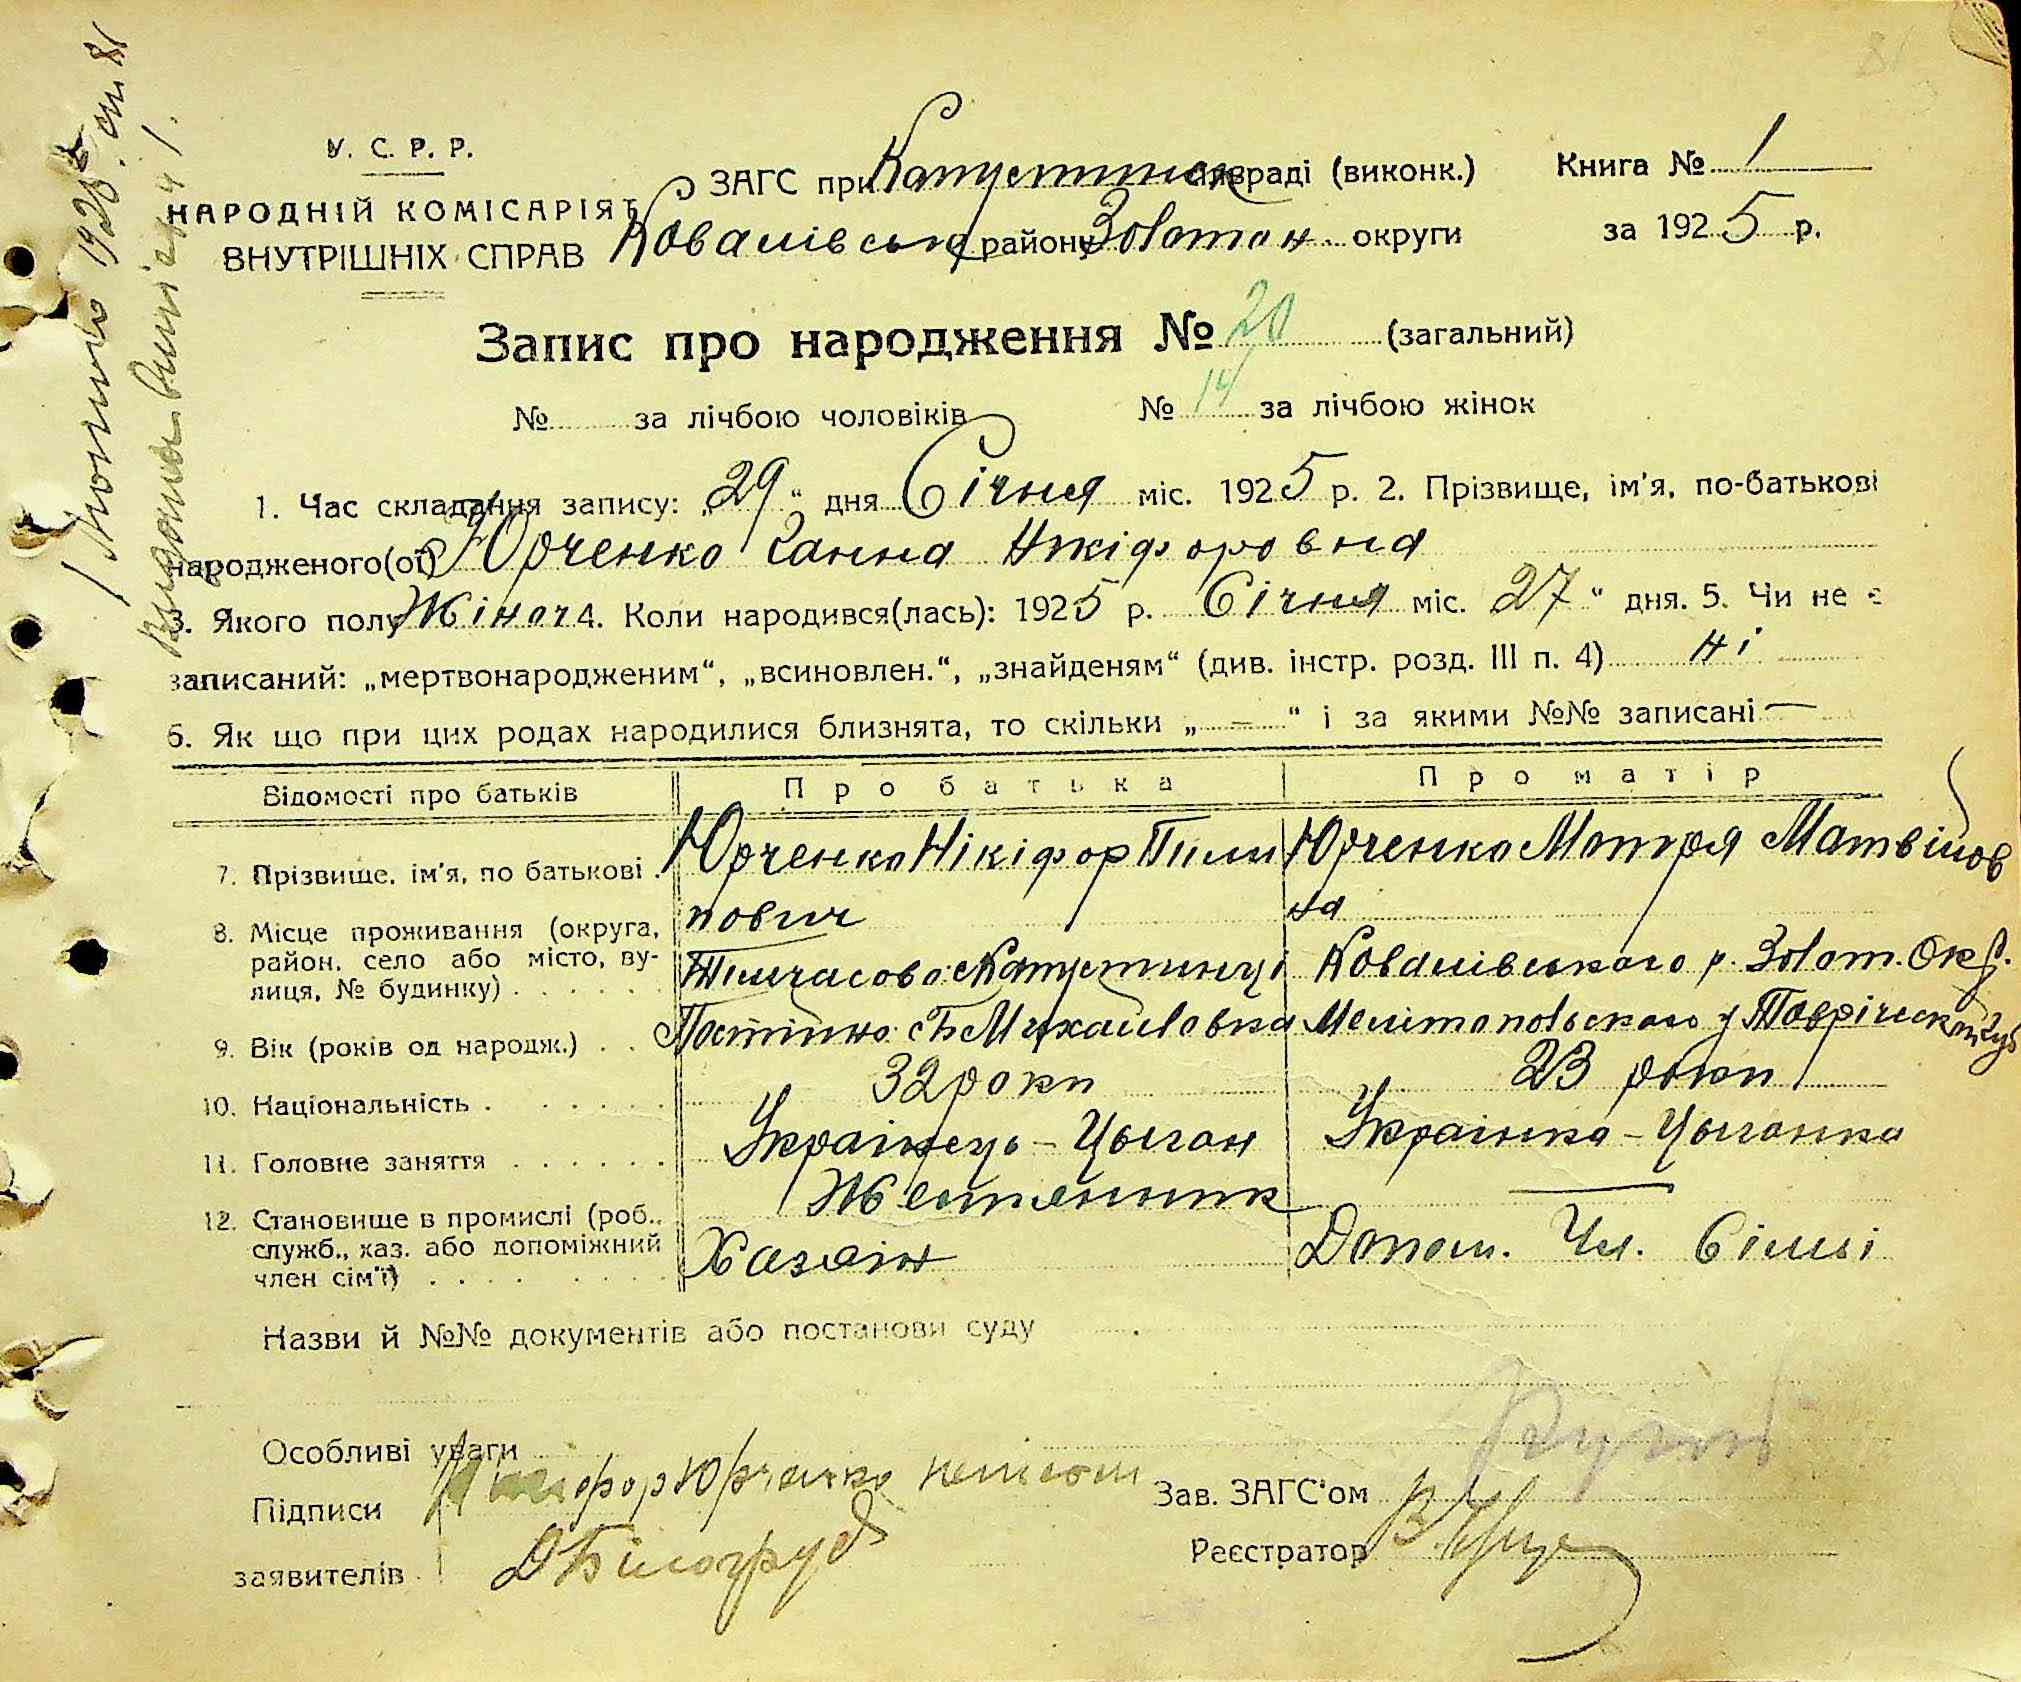 У. С. Р. Р.
НАРОДНІЙ КОМІСАРІЯТ
ВНУТРІШНІХ СПРАВ
ЗАГС при Капустинск сільраді (виконк.)
Ковалівськ району Золотон. округи
Книга № 1
за 1925 р.
Запис про народження № 20 (загальний)
№ за лічбою чоловіків № 14 за лічбою жінок
1. Час складання запису: „29“ дня Січня міс. 1925 р. 2. Прізвище, ім'я, по-батькові
народженого(ої) Юрченко Ганна Нікіфоровна
3. Якого полу Жіноч 4. Коли народився(лась): 1925 р. Січня міс. 27“ дня. 5. Чи не є
записаний: „мертвонародженим“, „всиновлен.“, „знайденям“ (див. інстр. розд. III п. 4) Ні
6. Як що при цих родах народилися близнята, то скільки „ – “ і за якими №№ записані —
Відомості про батьків Про батька Про матір
7. Прізвище, ім'я, по батькові . Юрченко Нікіфор Пили Юрченко Мотря Матвійов
пович на
8. Місце проживання (округа,
район, село або місто, ву-
лиця, № будинку) . . . . . .
Тимчасово: Капустинці Ковалівського р. Золот. Окр.
9. Вік (років од народж.) . . Постійно: с Б Михайловка Мелітопольского у Таврическ
32 роки 23 роки
10. Національність . . . . . .
Українець – Цыган Українка – Цыганка
11. Головне заняття . . . . . .
Жестянник —
12. Становище в промислі (роб.,
служб., хаз. або допоміжний
член сім'ї) . . . . . .
Хазяїн Допом. Чл. Сімьі
Назви й №№ документів або постанови суду
Особливі уваги
Підписи
заявителів
Юрченко
Д Білогруд
Зав. ЗАГС'ом
Реєстратор